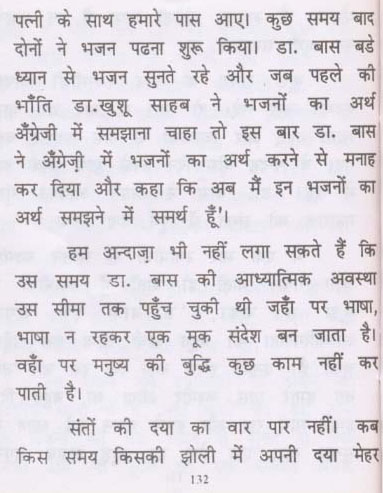 पत्नी के साथ हमारे पास आए। कुछ समय बाद
दोनों ने भजन पढना शुरू किया। डा. बास बडे
ध्यान से भजन सुनते रहे और जब पहले की
भाँति डा.खुशू साहब ने भजनों का अर्थ
अँग्रेजी में समझाना चाहा तो इस बार डा. बास
ने अँग्रेज़ी में भजनों का अर्थ करने से मनाह
कर दिया और कहा कि अब मैं इन भजनों का
अर्थ समझने में समर्थ हूँ'।
हम अन्दाज़ा भी नहीं लगा सकते हैं कि
उस समय डा. बास की आध्यात्मिक अवस्था
उस सीमा तक पहुँच चुकी थी जहाँ पर भाषा,
भाषा न रहकर एक मूक संदेश बन जाता है।
वहाँ पर मनुष्य की बुद्धि कुछ काम नहीं कर
पाती है।
संतों की दया का वार पार नहीं। कब
किस समय किसकी झोली में अपनी दया मेहर
132